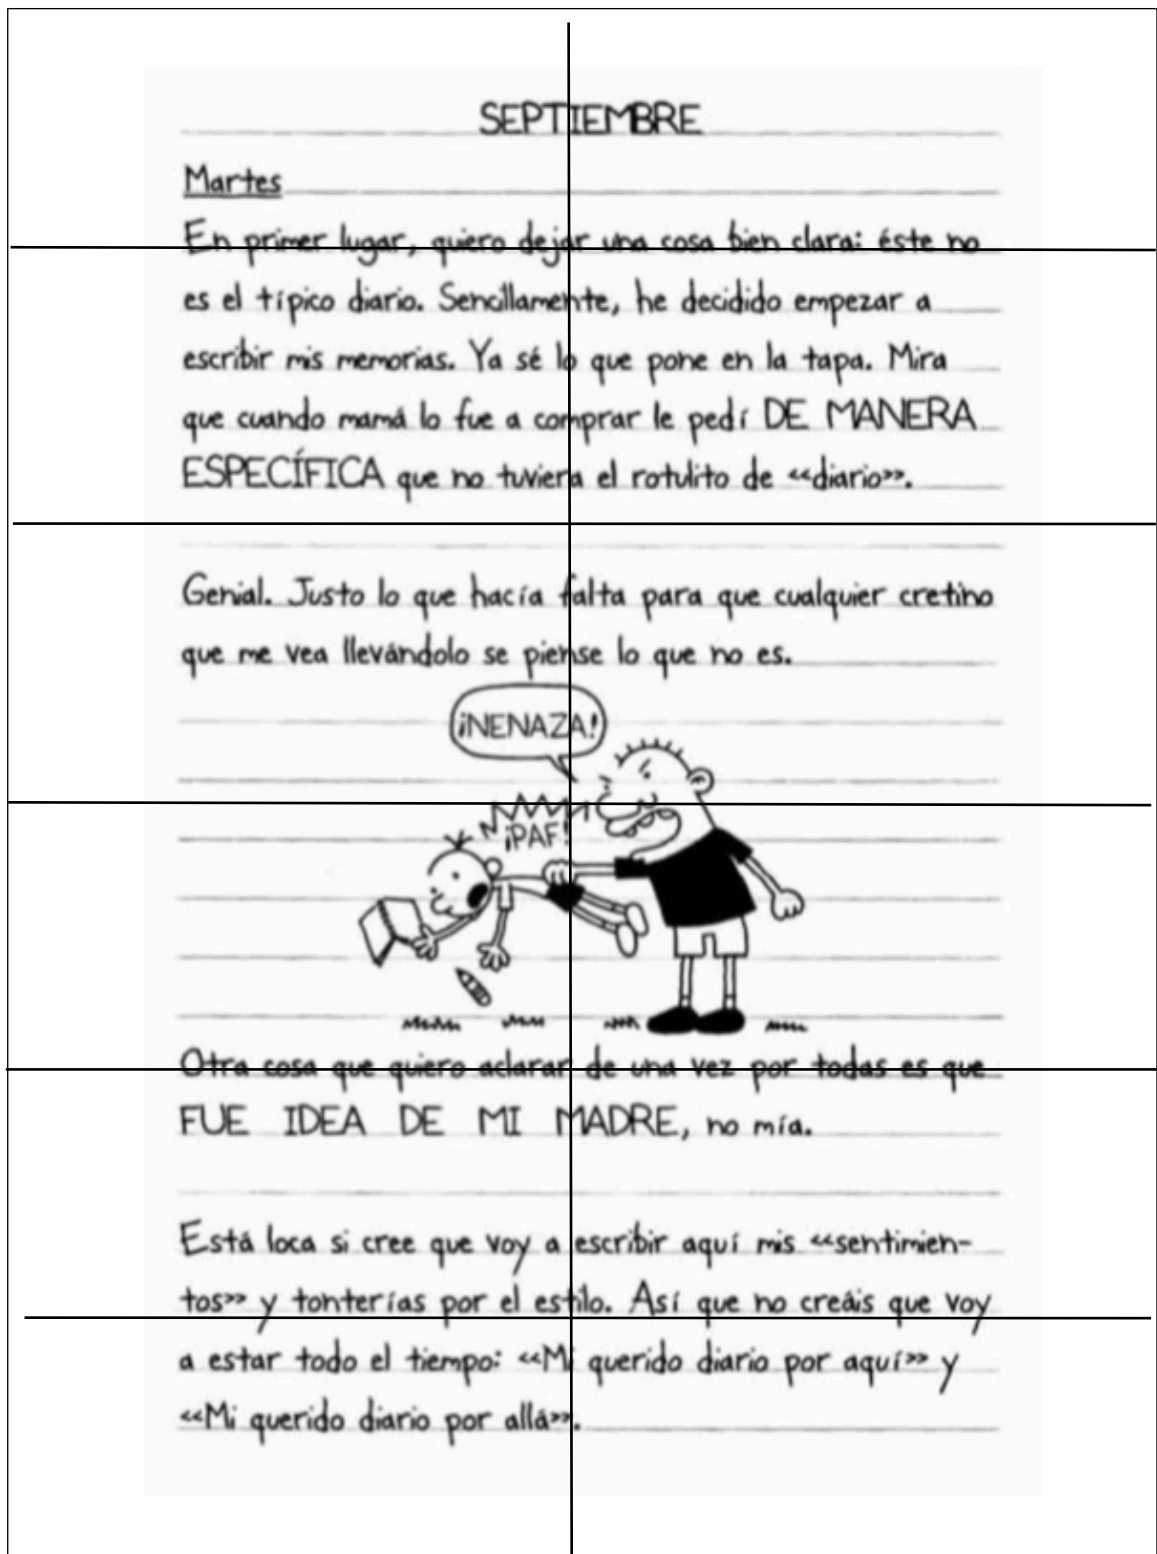 SEPTIEMBRE
Martes
En primer lugar, quiero dejar una cosa bien clara: éste no
es el típico diario. Sencillamente, he decidido empezar a
escribir mis memorias. Ya sé lo que pone en la tapa. Mira
que cuando mamá lo fue a comprar le pedí DE MANERA
ESPECÍFICA que no tuviera el rotulito de «diario».
Genial. Justo lo que hacía falta para que cualquier cretino
que me vea llevándolo se piense lo que no es.
¡NENAZA!
¡PAF!
Otra cosa que quiero aclarar de una vez por todas es que
FUE IDEA DE MI MADRE, no mía.
Está loca si cree que voy a escribir aquí mis «sentimien-
tos» y tonterías por el estilo. Así que no creáis que voy
a estar todo el tiempo: «Mi querido diario por aquí» y
«Mi querido diario por allá».